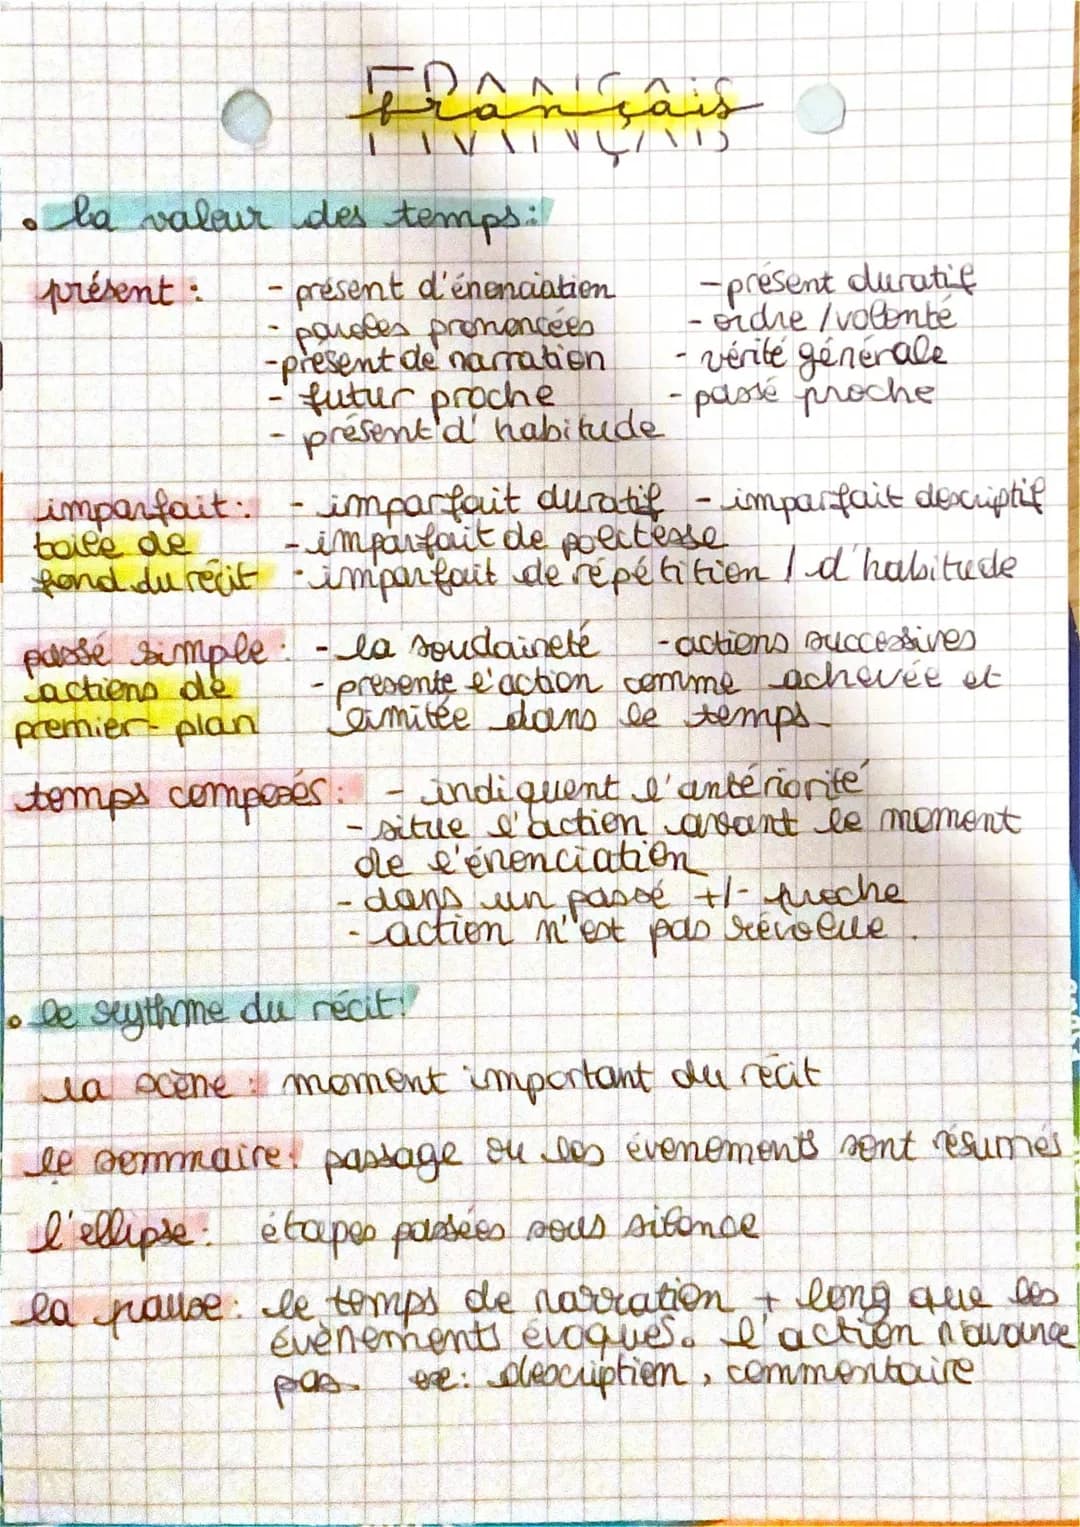 français
• la valeur des temps:
présent : - présent d'énonciation - présent duratif
- paroles prononcées - ordre / volonté
- présent de narration - vérité générale
- futur proche - passé proche
- présent d'habitude
imparfait: - imparfait duratif - imparfait descriptif
toile de - imparfait de politesse
fond du récit - imparfait de répétition / d'habitude
passé simple : - la soudaineté - actions successives
actions de - présente l'action comme achevée et
premier-plan limitée dans le temps.
temps composés: - indiquent l'antériorité
- situe l'action avant le moment
de l'énonciation
- dans un passé +/- proche
- action n'est pas révolue.
• le rythme du récit:
la scène : moment important du récit
le sommaire: passage ou les évenements sont résumés
l'ellipse: étapes passées sous silence
la pause: le temps de narration + long que les
évènements évoqués. l'action n'avance
pas. ex: description, commentaire